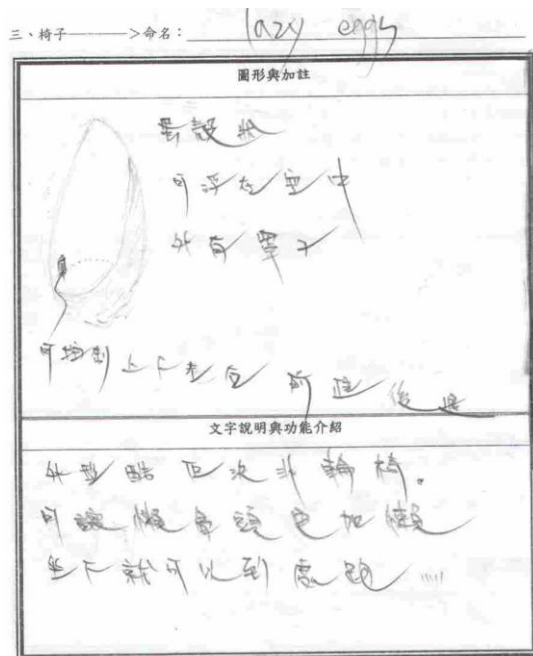 三、椅子————>命名：lazy eggs
圖形與加註
蛋殼狀
可浮在空中
外有罩子
可控制上下左右 前進後退
文字說明與功能介紹
外型酷 但決非輪椅。
可讓懶骨頭更加懶
坐下就可以到處跑